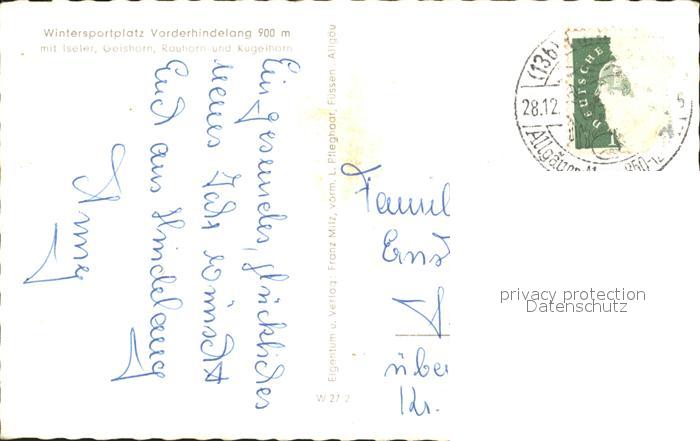 Wintersportplatz Vorderhindelang 900 m
mit Iseler, Geishorn, Rauhorn und Kugelhorn
Ein gesundes, glückliches
neues Jahr wünscht
Euch aus Hindelang
Eigentum u. Verlag: Franz Milz, vorm. L. Pfleghaar, Füssen, Allgäu
W 27 2
Famil
Ernst
über
Kr.
(13b)
28.12.
DEUTSCHE
privacy protection
Datenschutz